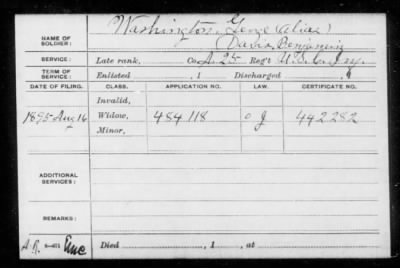 NAME OF SOLDIER: Washington, Gene (alias)
Davis, Benjamin
SERVICE: Late rank, Co. A. 25 Reg't U.S. Inf.
TERM OF SERVICE: Enlisted , 1 Discharged , 1
DATE OF FILING. CLASS. APPLICATION NO. LAW. CERTIFICATE NO.
Invalid,
1895 Aug 16 Widow, 484118 O g 442282
Minor,
ADDITIONAL SERVICES:
REMARKS:
Died , 1 , at